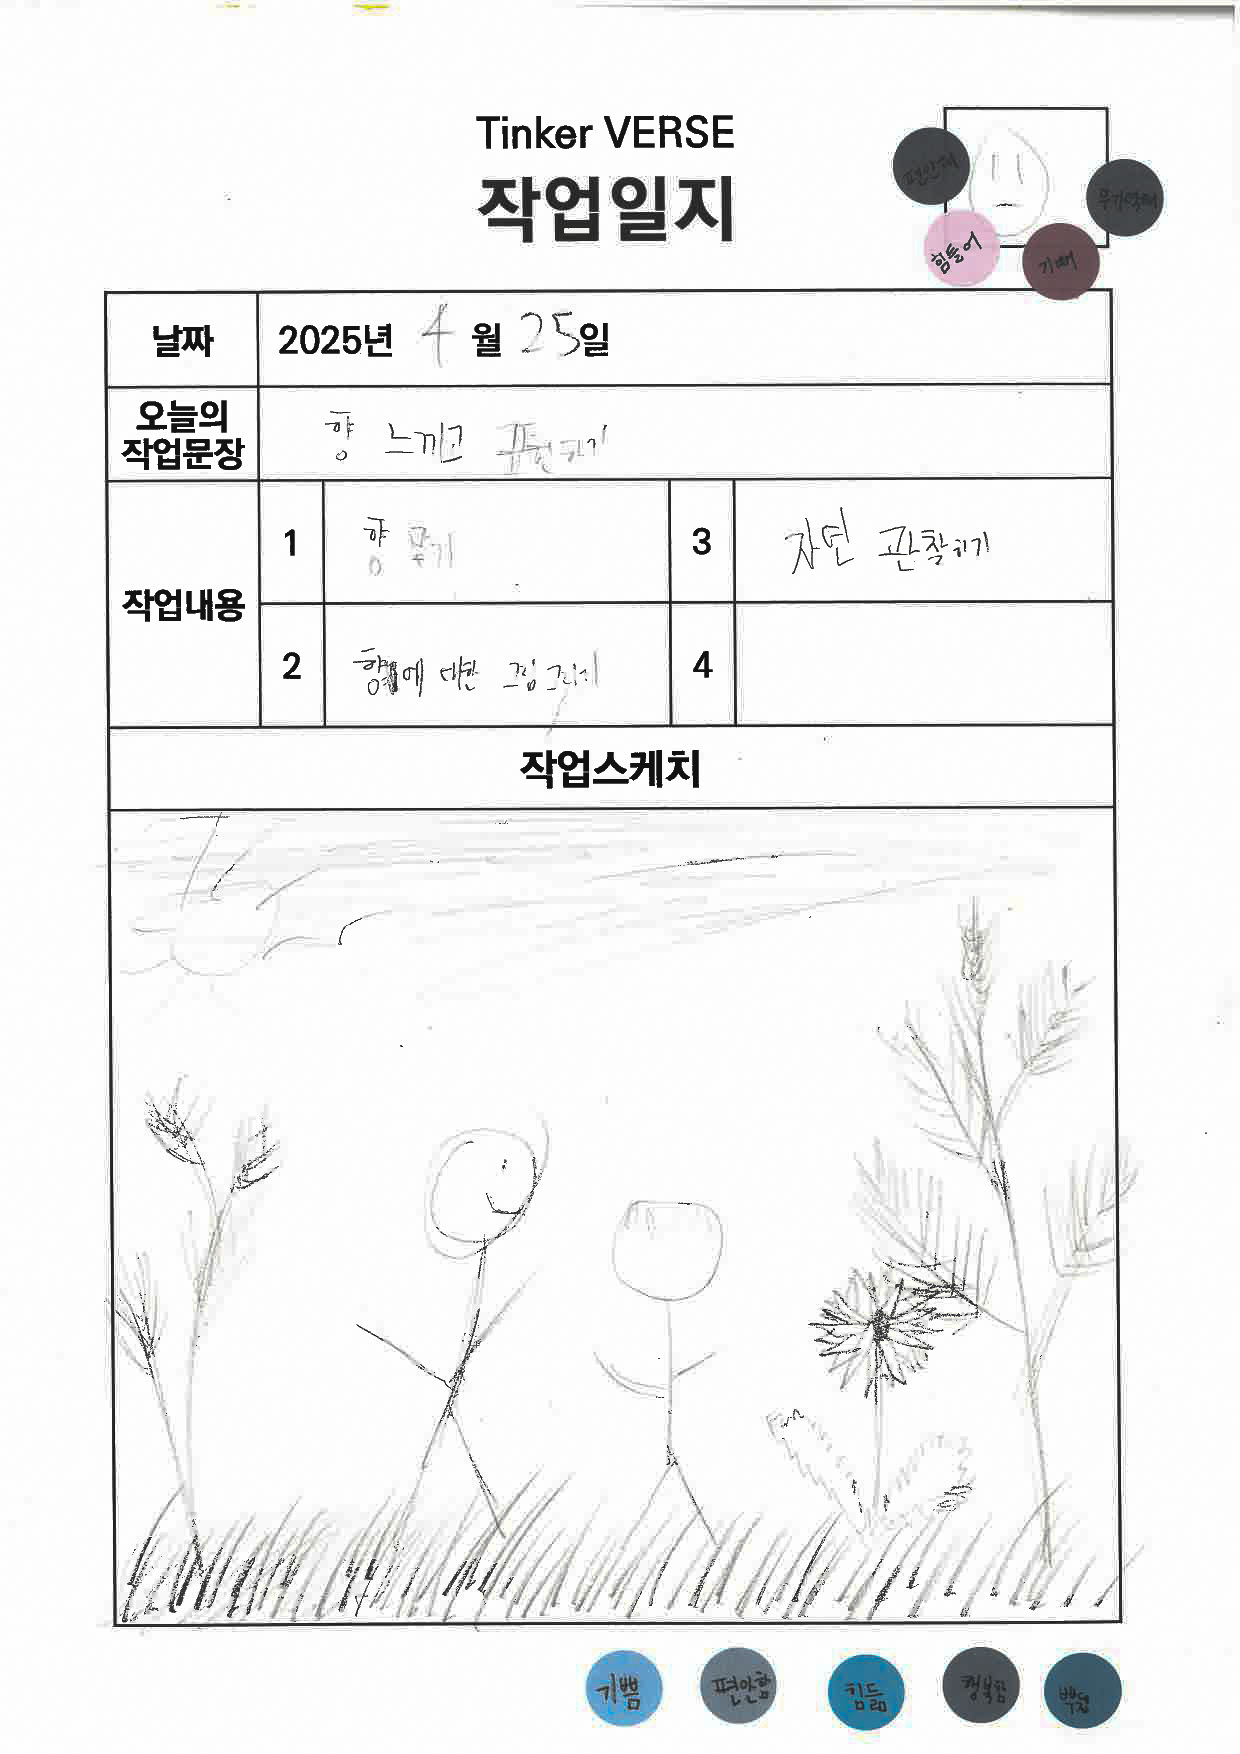 Tinker VERSE
작업일지
편안해
무기력해
힘들어
기뻐
날짜
2025년 4월 25일
오늘의
작업문장
향 느끼고 표현하기
작업내용
1
향 맡기
3
자연 관찰하기
2
향에 대한 그림 그리기
4
작업스케치
기쁨
편안함
힘듦
행복함